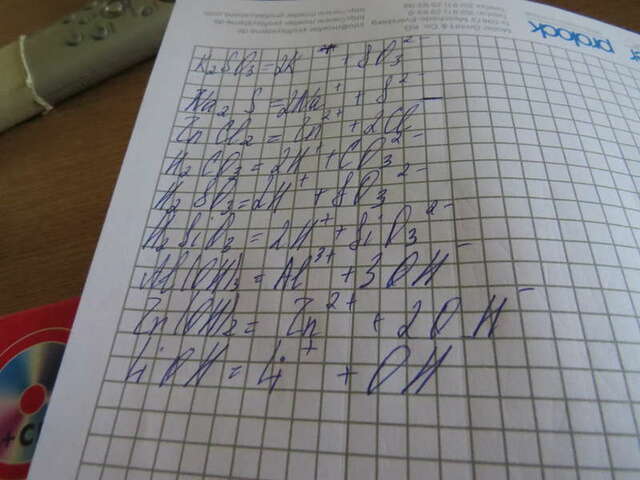 prolock
K₂SO₃=2K⁺+SO₃²⁻
Na₂S=2Na⁺+S²⁻
ZnCl₂=Zn²⁺+2Cl⁻
H₂CO₃=2H⁺+CO₃²⁻
H₂SO₃=2H⁺+SO₃²⁻
H₂SiO₃=2H⁺+SiO₃²⁻
Al(OH)₃=Al³⁺+3OH⁻
Zn(OH)₂=Zn²⁺+2OH⁻
LiOH=Li⁺+OH